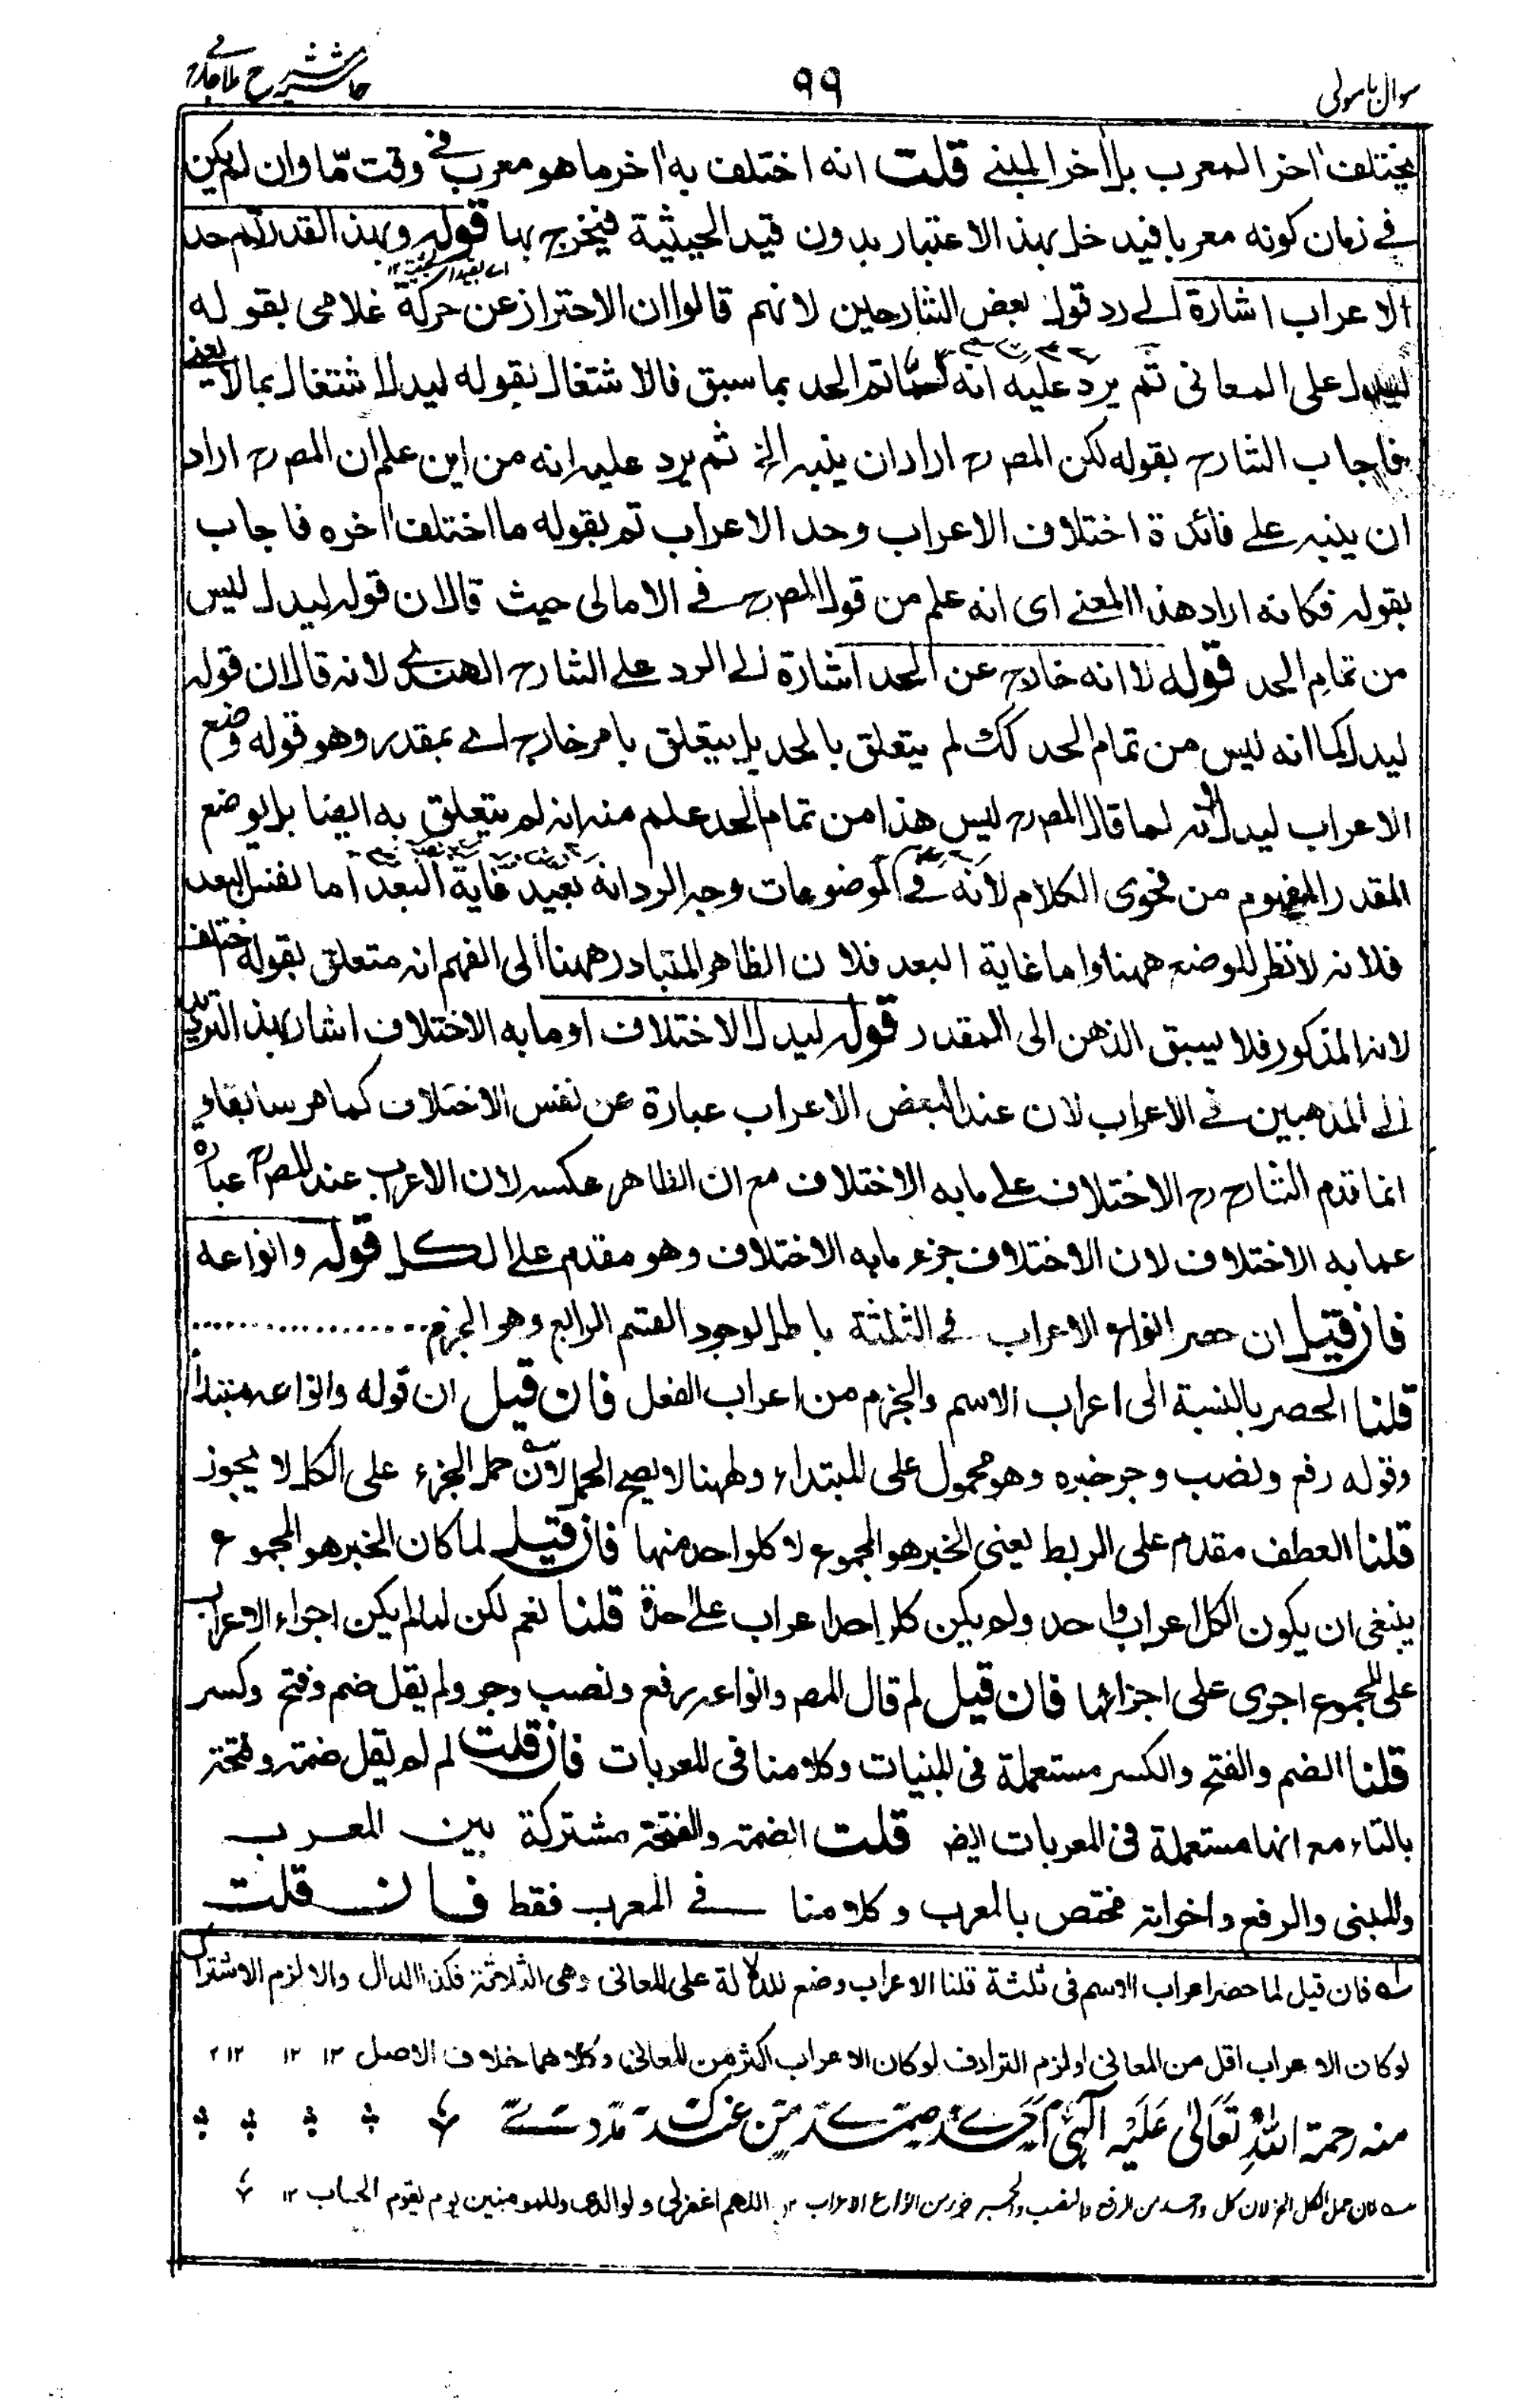 سوال باسولی
۹۹
حاشیہ شرح ملا جامی
يختلف اخر المعرب بل اخر المبنی قلت انه اختلف به اخر ما هو معرب فی وقت مّا وان لم يكن
فی زمان كونه معربا فيدخل بهذا الاعتبار بدون قيد الحيثية فيخرج بها قوله وبهذا القدر تم حد
ای بقيد الحيثية ۱۲
الاعراب اشارة الی رد قول بعض الشارحين لانهم قالوا ان الاحتراز عن حركة غلامی بقوله
ليدل علی المعانی ثم يرد عليه انه لما تم الحد بما سبق فالاشتغال بقوله ليدل اشتغال بما لا يعنی
فاجاب الشارح بقوله لكن المصرح اراد ان ينبه الخ ثم يرد عليه انه من اين علم ان المصرح اراد
ان ينبه علی فائدة اختلاف الاعراب وحد الاعراب تم بقوله ما اختلف اخره فاجاب
بقوله فكانه اراد هذا المعنی ای انه علم من قول المصرح فی الامالی حيث قال ان قوله ليدل ليس
من تمام الحد قوله لا انه خارج عن الحد اشارة الی الرد علی الشارح الهندی لانه قال ان قوله
ليدل كما انه ليس من تمام الحد كك لم يتعلق بالحد بل يتعلق بامر خارج ای بمقدر وهو قوله وضع
الاعراب ليدل لانه لما قال المصرح ليس هذا من تمام الحد علم منه انه لم يتعلق به ايضا بل بوضع
المقدر المفهوم من فحوی الكلام لانه فی الموضوعات وجه الرد انه بعيد غاية البعد اما نفس البعد
فلانه لا نظر للوضع ههنا واما غاية البعد فلان الظاهر المتبادر ههنا الی الفهم انه متعلق بقوله اختلف
لانه المذكور فلا يسبق الذهن الی المقدر قوله ليدل الاختلاف او ما به الاختلاف اشار بهذا الترديد
الی المذهبين فی الاعراب لان عند البعض الاعراب عبارة عن نفس الاختلاف كما مر سابقا و
انما قدم الشارح رح الاختلاف علی ما به الاختلاف مع ان الظاهر عكسه لان الاعراب عند المصرح عبارة
عما به الاختلاف لان الاختلاف جزء ما به الاختلاف وهو مقدم علی الكل قوله وانواعه
فان قيل ان حصر انواع الاعراب فی الثلثة باطل لوجود القسم الرابع وهو الجزم................
قلنا الحصر بالنسبة الی اعراب الاسم والجزم من اعراب الفعل فان قيل ان قوله وانواعه مبتدأ
وقوله رفع ونصب وجر خبره وهو محمول علی المبتداء وههنا لا يصح الحمل لان حمل الجزء علی الكل لا يجوز
قلنا العطف مقدم علی الربط يعنی الخبر هو المجموع لا كل واحد منها فان قيل لما كان الخبر هو المجموع
ينبغی ان يكون الكل اعراب واحد ولم يكن كل احد اعراب علی حدة قلنا نعم لكن لما لم يكن اجراء الاعراب
علی المجموع اجری علی اجزائها فان قيل لم قال المصر وانواعه رفع ونصب وجر ولم يقل ضم وفتح وكسر
قلنا الضم والفتح والكسر مستعملة فی المبنيات وكلامنا فی المعربات فان قلت لم لم يقل ضمة وفتحة
بالتاء مع انها مستعملة فی المعربات ايضا قلت الضمة والفتحة مشتركة بين المعرب
والمبنی والرفع واخواته مختص بالمعرب وكلامنا فی المعرب فقط فان قلت
له فان قيل لما حصر اعراب الاسم فی ثلثة قلنا الاعراب وضع للدلالة علی المعانی وهی الثلاثة فكذا الدال والا لزم الاشتراك
لو كان الاعراب اقل من المعانی او لزم الترادف لو كان الاعراب اكثر من المعانی وكلاهما خلاف الاصل ۱۲ ۱۲ ۱۲
منه رحمة الله تعالی عليه
لان حمل الكل الخ لان كل واحد من الرفع والنصب والجر جزء من انواع الاعراب ۱۲ اللهم اغفر لی ولوالدی وللمومنين يوم يقوم الحساب ۱۲